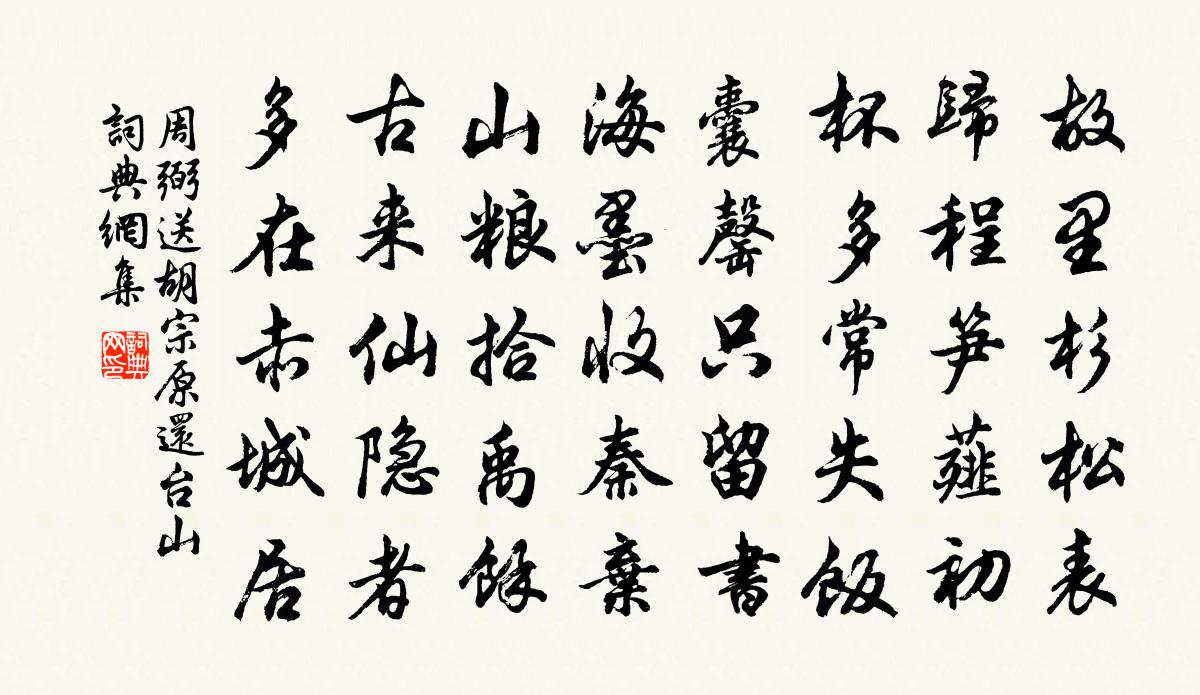 故里杉松表
歸程笋薤初
杯多常失飯
囊罄只留書
海墨收秦棄
山粮拾禹餘
古来仙隐者
多在赤城居
周弼送胡宗原還台山
詞典網集
詞典网印